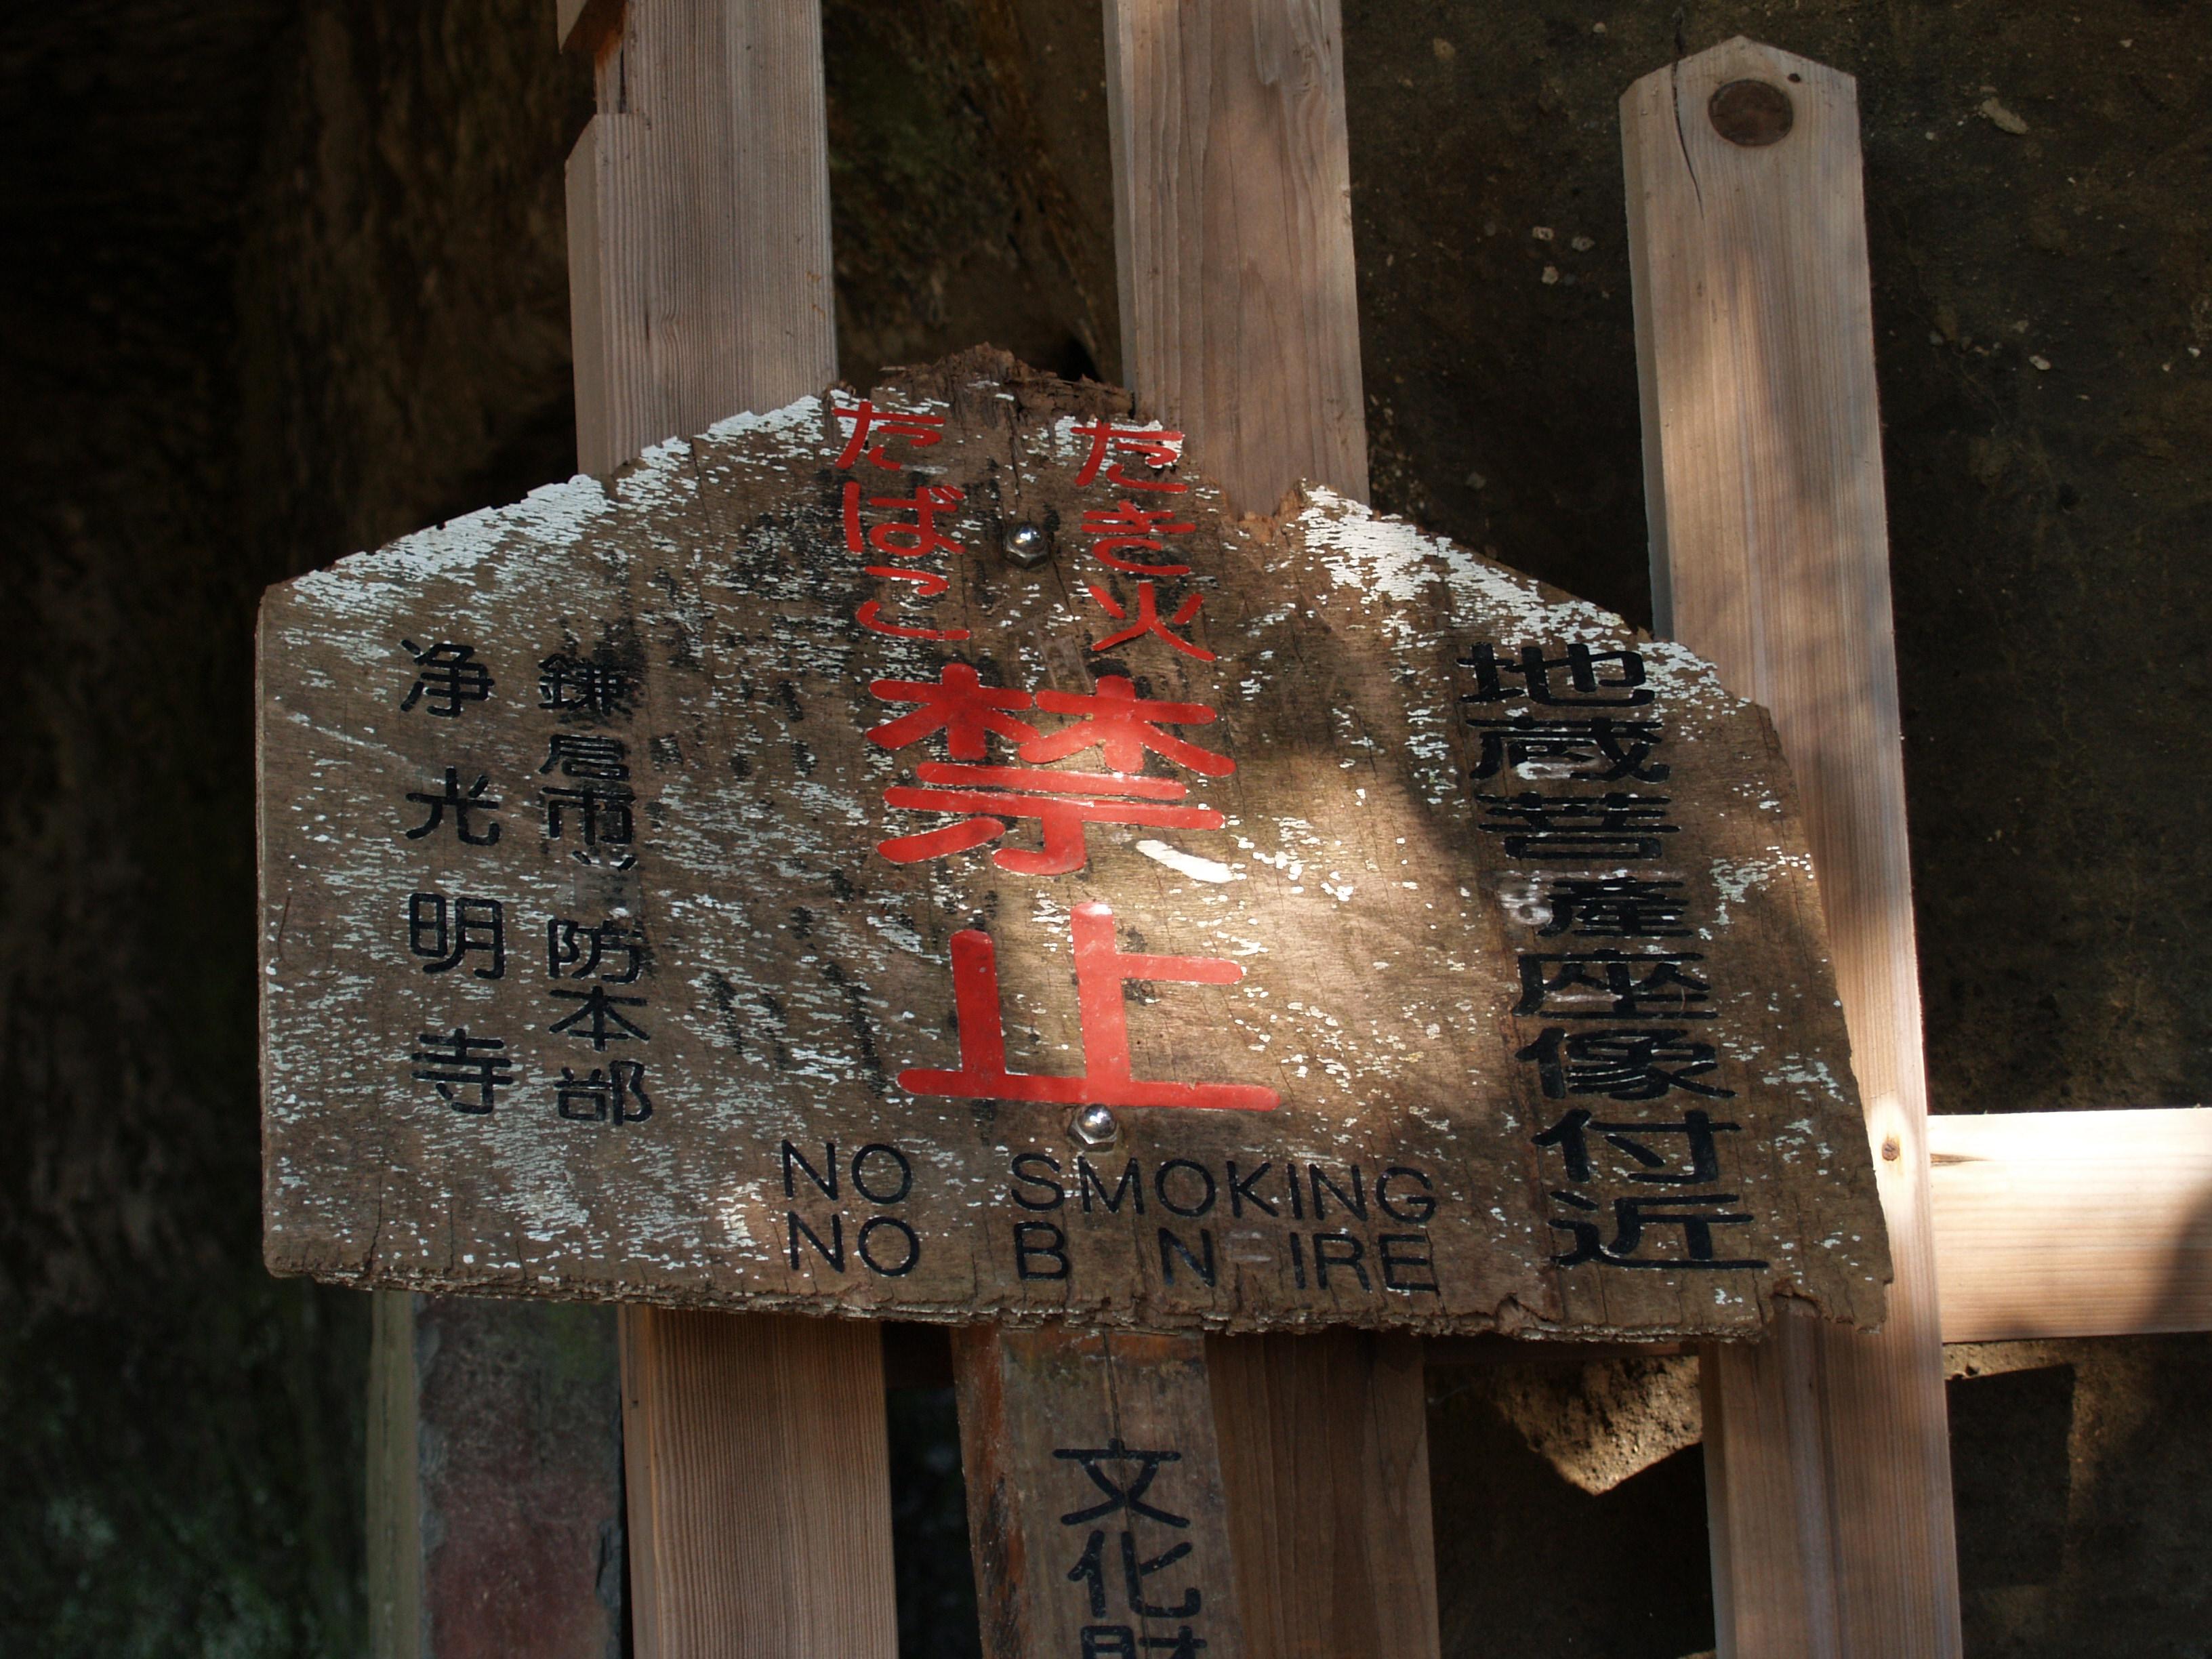 地蔵菩薩座像付近
たき火
たばこ
禁止
鎌倉市消防本部
浄光明寺
NO SMOKING
NO B N IRE
文化財